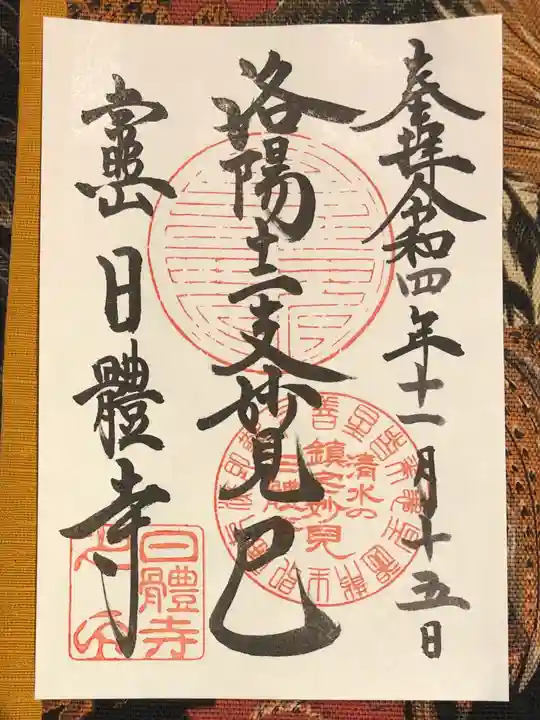 奉拝 令和四年十一月十五日
洛陽十二支妙見 巳
靈山 日體寺
清水の
鎮宅妙見
日體寺